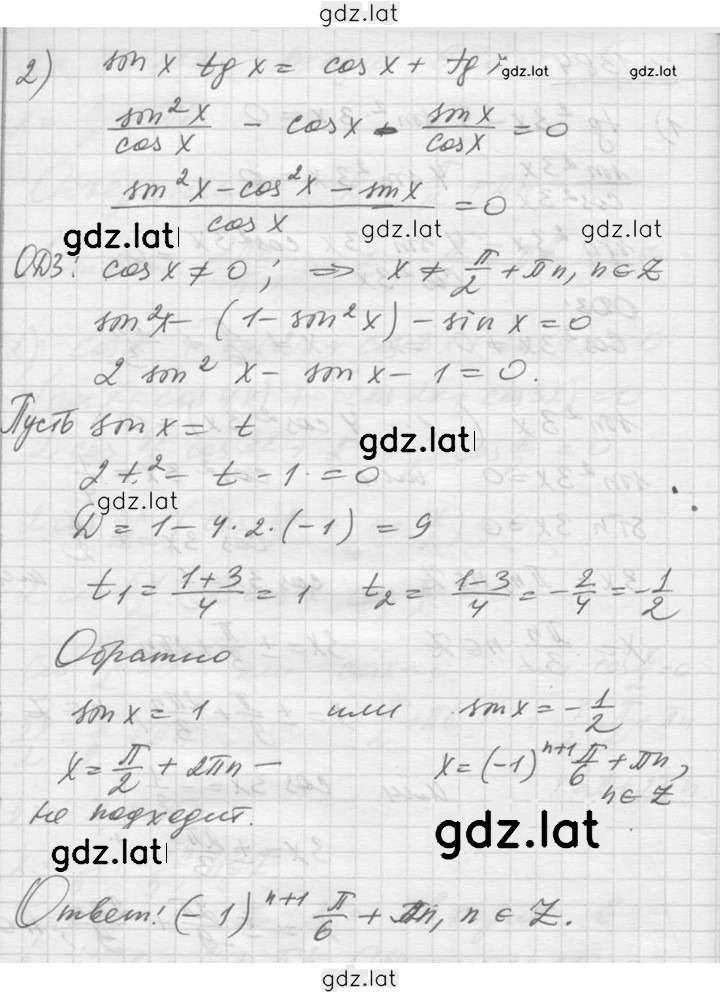 gdz.lat
2) sin x tg x = cos x + tg x
gdz.lat gdz.lat
sin²x/cos x - cos x - sin x/cos x = 0
(sin²x - cos²x - sin x)/cos x = 0
gdz.lat gdz.lat gdz.lat
ОДЗ: cos x ≠ 0; => x ≠ π/2 + πn, n ∈ Z
sin²x - (1 - sin²x) - sin x = 0
2 sin² x - sin x - 1 = 0.
Пусть sin x = t
gdz.lat
2t² - t - 1 = 0
gdz.lat
D = 1 - 4·2·(-1) = 9
t₁ = (1+3)/4 = 1 t₂ = (1-3)/4 = -2/4 = -1/2
Обратно
sin x = 1 или sin x = -1/2
x = π/2 + 2πn — x = (-1)ⁿ⁺¹ π/6 + πn,
не подходит. n ∈ Z
gdz.lat gdz.lat
Ответ: (-1)ⁿ⁺¹ π/6 + πn, n ∈ Z.
gdz.lat